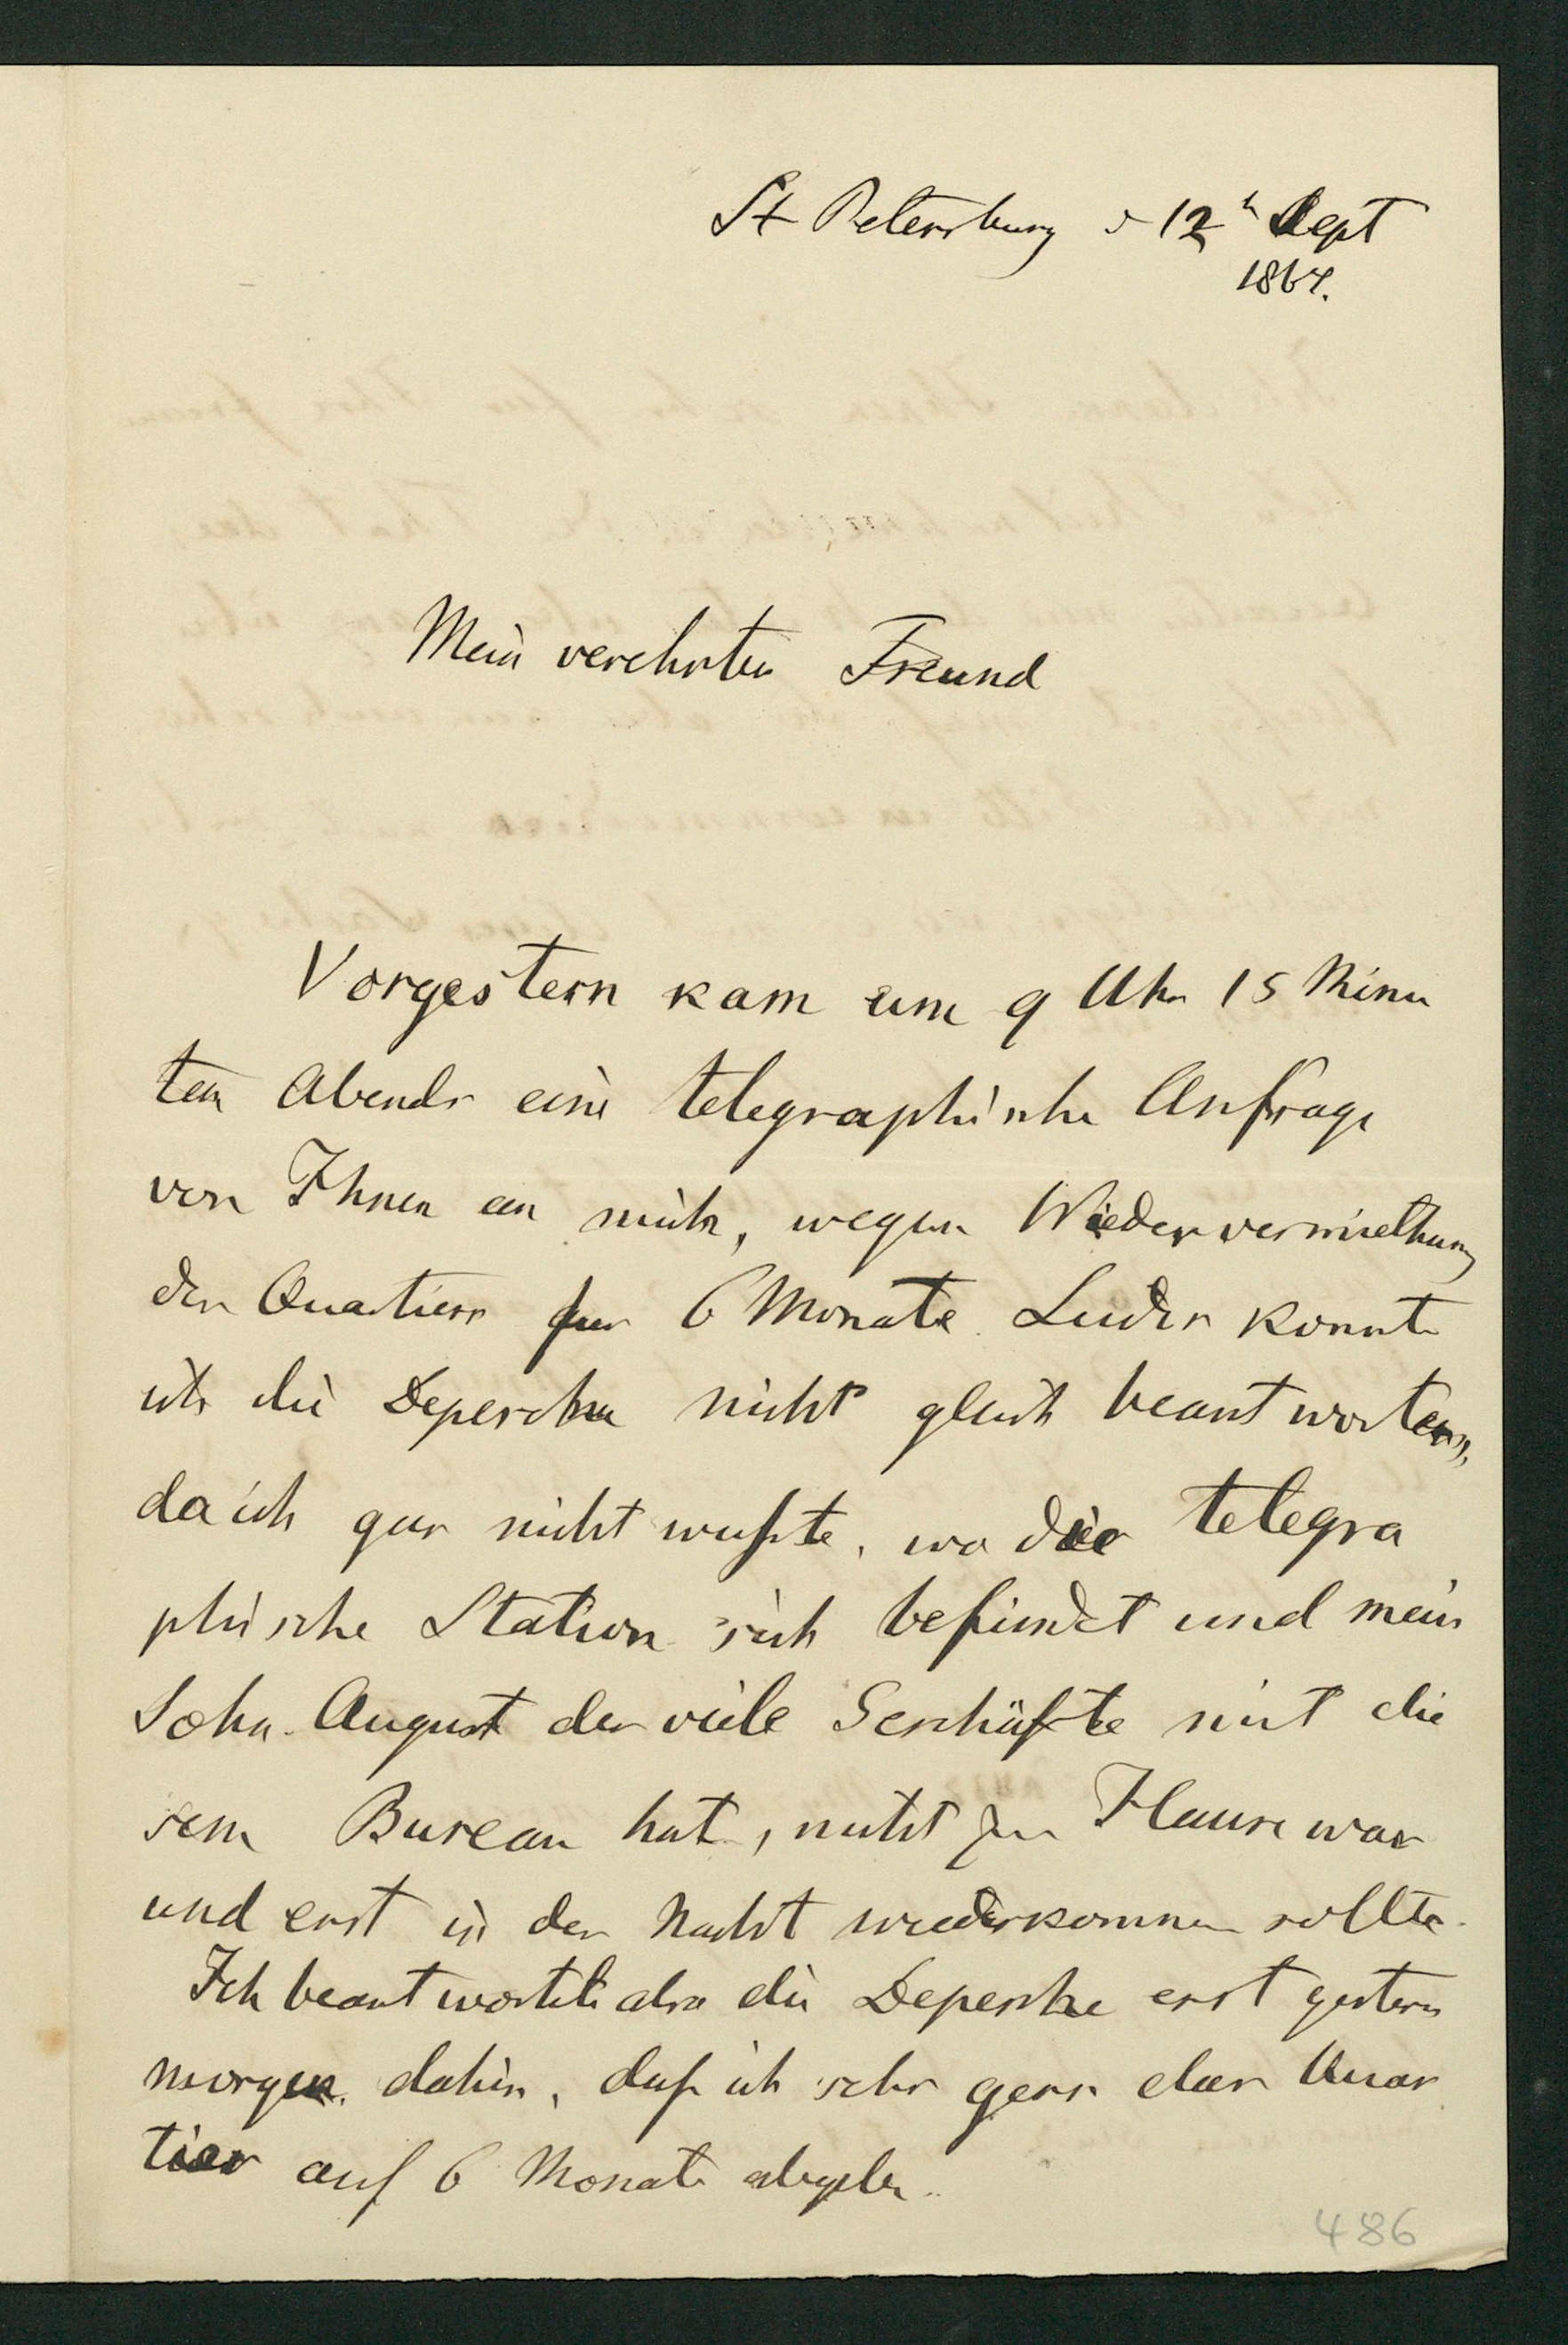 St Petersburg d 12n Sept
1864.
Mein verehrter Freund
Vorgestern kam um 9 Uhr 15 Minu
ten Abends eine telegraphische Anfrage
von Ihnen an mich, wegen Wiedervermiethung
des Quartiers fur 6 Monate Leider konnte
ich die Depesche nicht gleich beantworten,
da ich gar nicht wußte, wo die telegra
phische Station sich befindet und mein
Sohn August der viele Geschäfte mit die
sem Bureau hat, nicht zu Hause war
und erst in der Nacht wiederkommen sollte.
Ich beantwortete also die Depesche erst gestern
morgen dahin, daß ich sehr gern das Quar
tier auf 6 Monate abgebe.
486